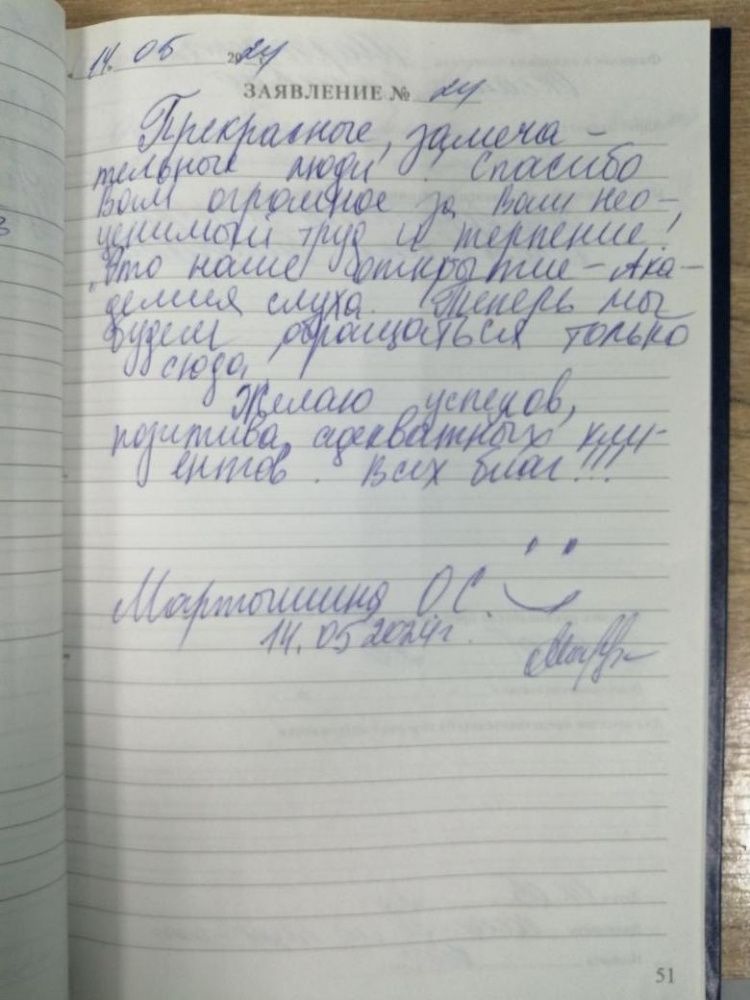 14. 05 2024
ЗАЯВЛЕНИЕ № 24
Прекрасные, замеча-
тельные люди! Спасибо
Вам огромное за Ваш нео-
ценимый труд и терпение!
Это наше открытие - Ака-
демия слуха. Теперь мы
будем обращаться только
сюда.
Желаю успехов,
позитива, адекватных кли-
ентов. Всех благ!!!
Мартышина О.С.
14.05 2024г.
51